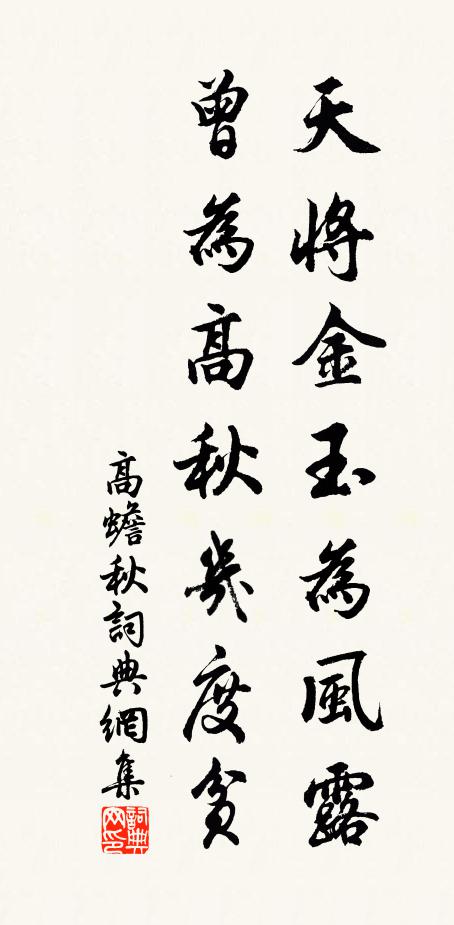 天將金玉為風露
曾為高秋幾度貧
高蟾秋詞典網集
詞典網印